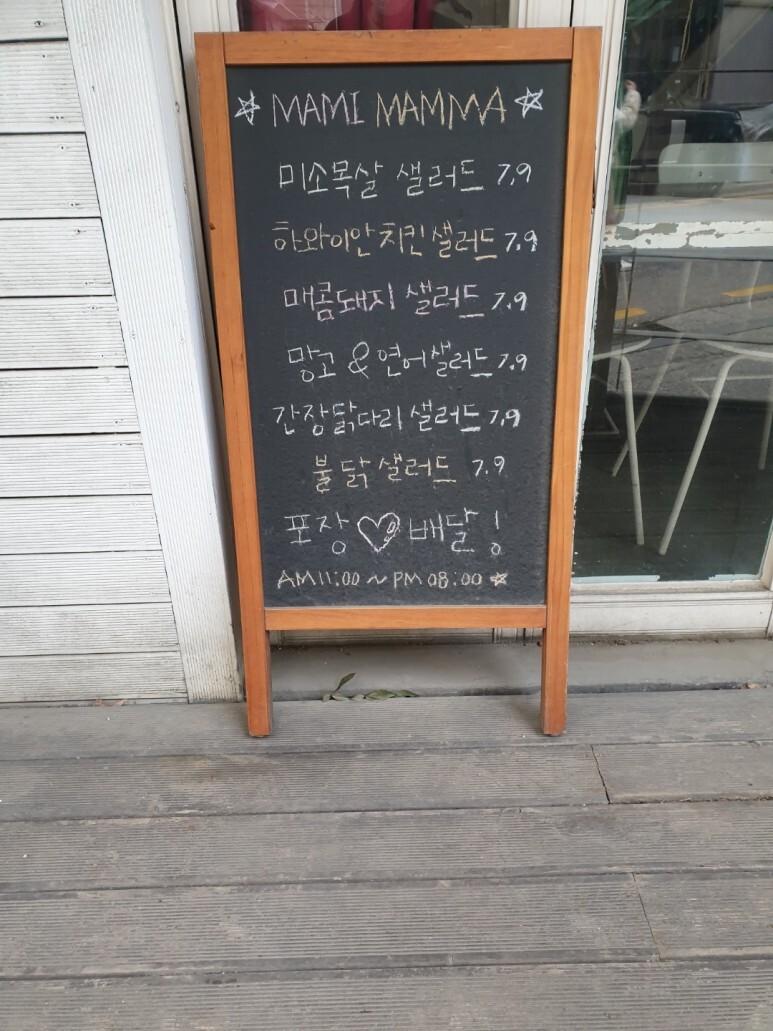 ☆ MAMI MAMMA ☆
미소목살 샐러드 7.9
하와이안 치킨 샐러드 7.9
매콤돼지 샐러드 7.9
망고 & 연어샐러드 7.9
간장닭다리 샐러드 7.9
불닭 샐러드 7.9
포장 ♡ 배달!
AM 11:00 ~ PM 08:00 ☆